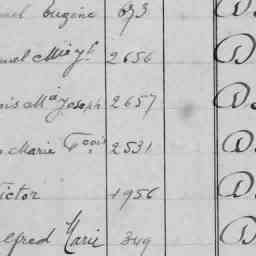 uel Eugène 673 D
uel Mie Jh 2656 D
is Ma Joseph 2657 D.
Marie Fçois 2531 D.
ictor 1956 D.
lfred Marie 349 D